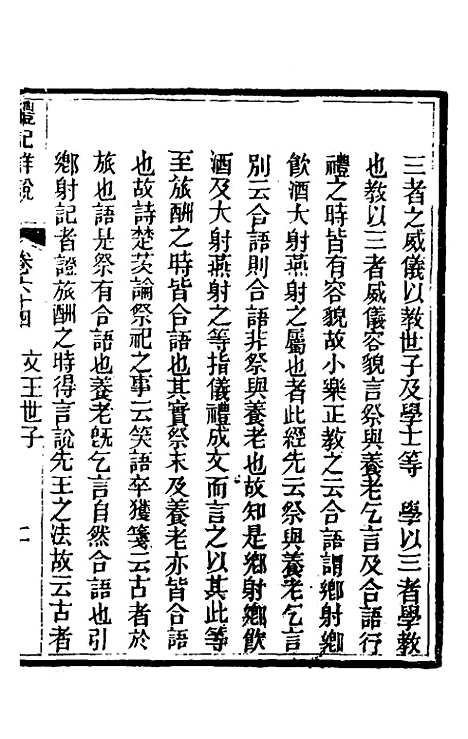 三者之威儀以教世子及學士等　學以三者學教
也教以三者威儀容貌言祭與養老乞言及合語行
禮之時皆有容貌故小樂正教之云合語謂鄉射鄉
飮酒大射燕射之屬也者此經先云祭與養老乞言
別云合語則合語非祭與養老也故知是鄉射鄉飮
酒及大射燕射之等指儀禮成文而言之以其此等
至旅酬之時皆合語也其實祭末及養老亦皆合語
也故詩楚茨論祭祀之事云笑語卒獲箋云古者於
旅也語是祭有合語也養老旣乞言自然合語也引
鄉射記者證旅酬之時得言說先王之法故云古者
禮記詳說　卷六十四　文王世子